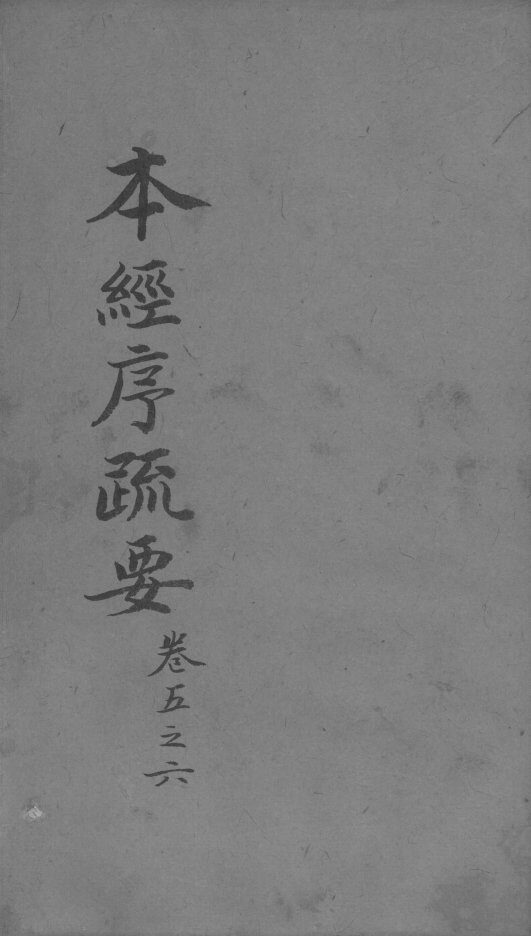 本經序疏要
卷五之六